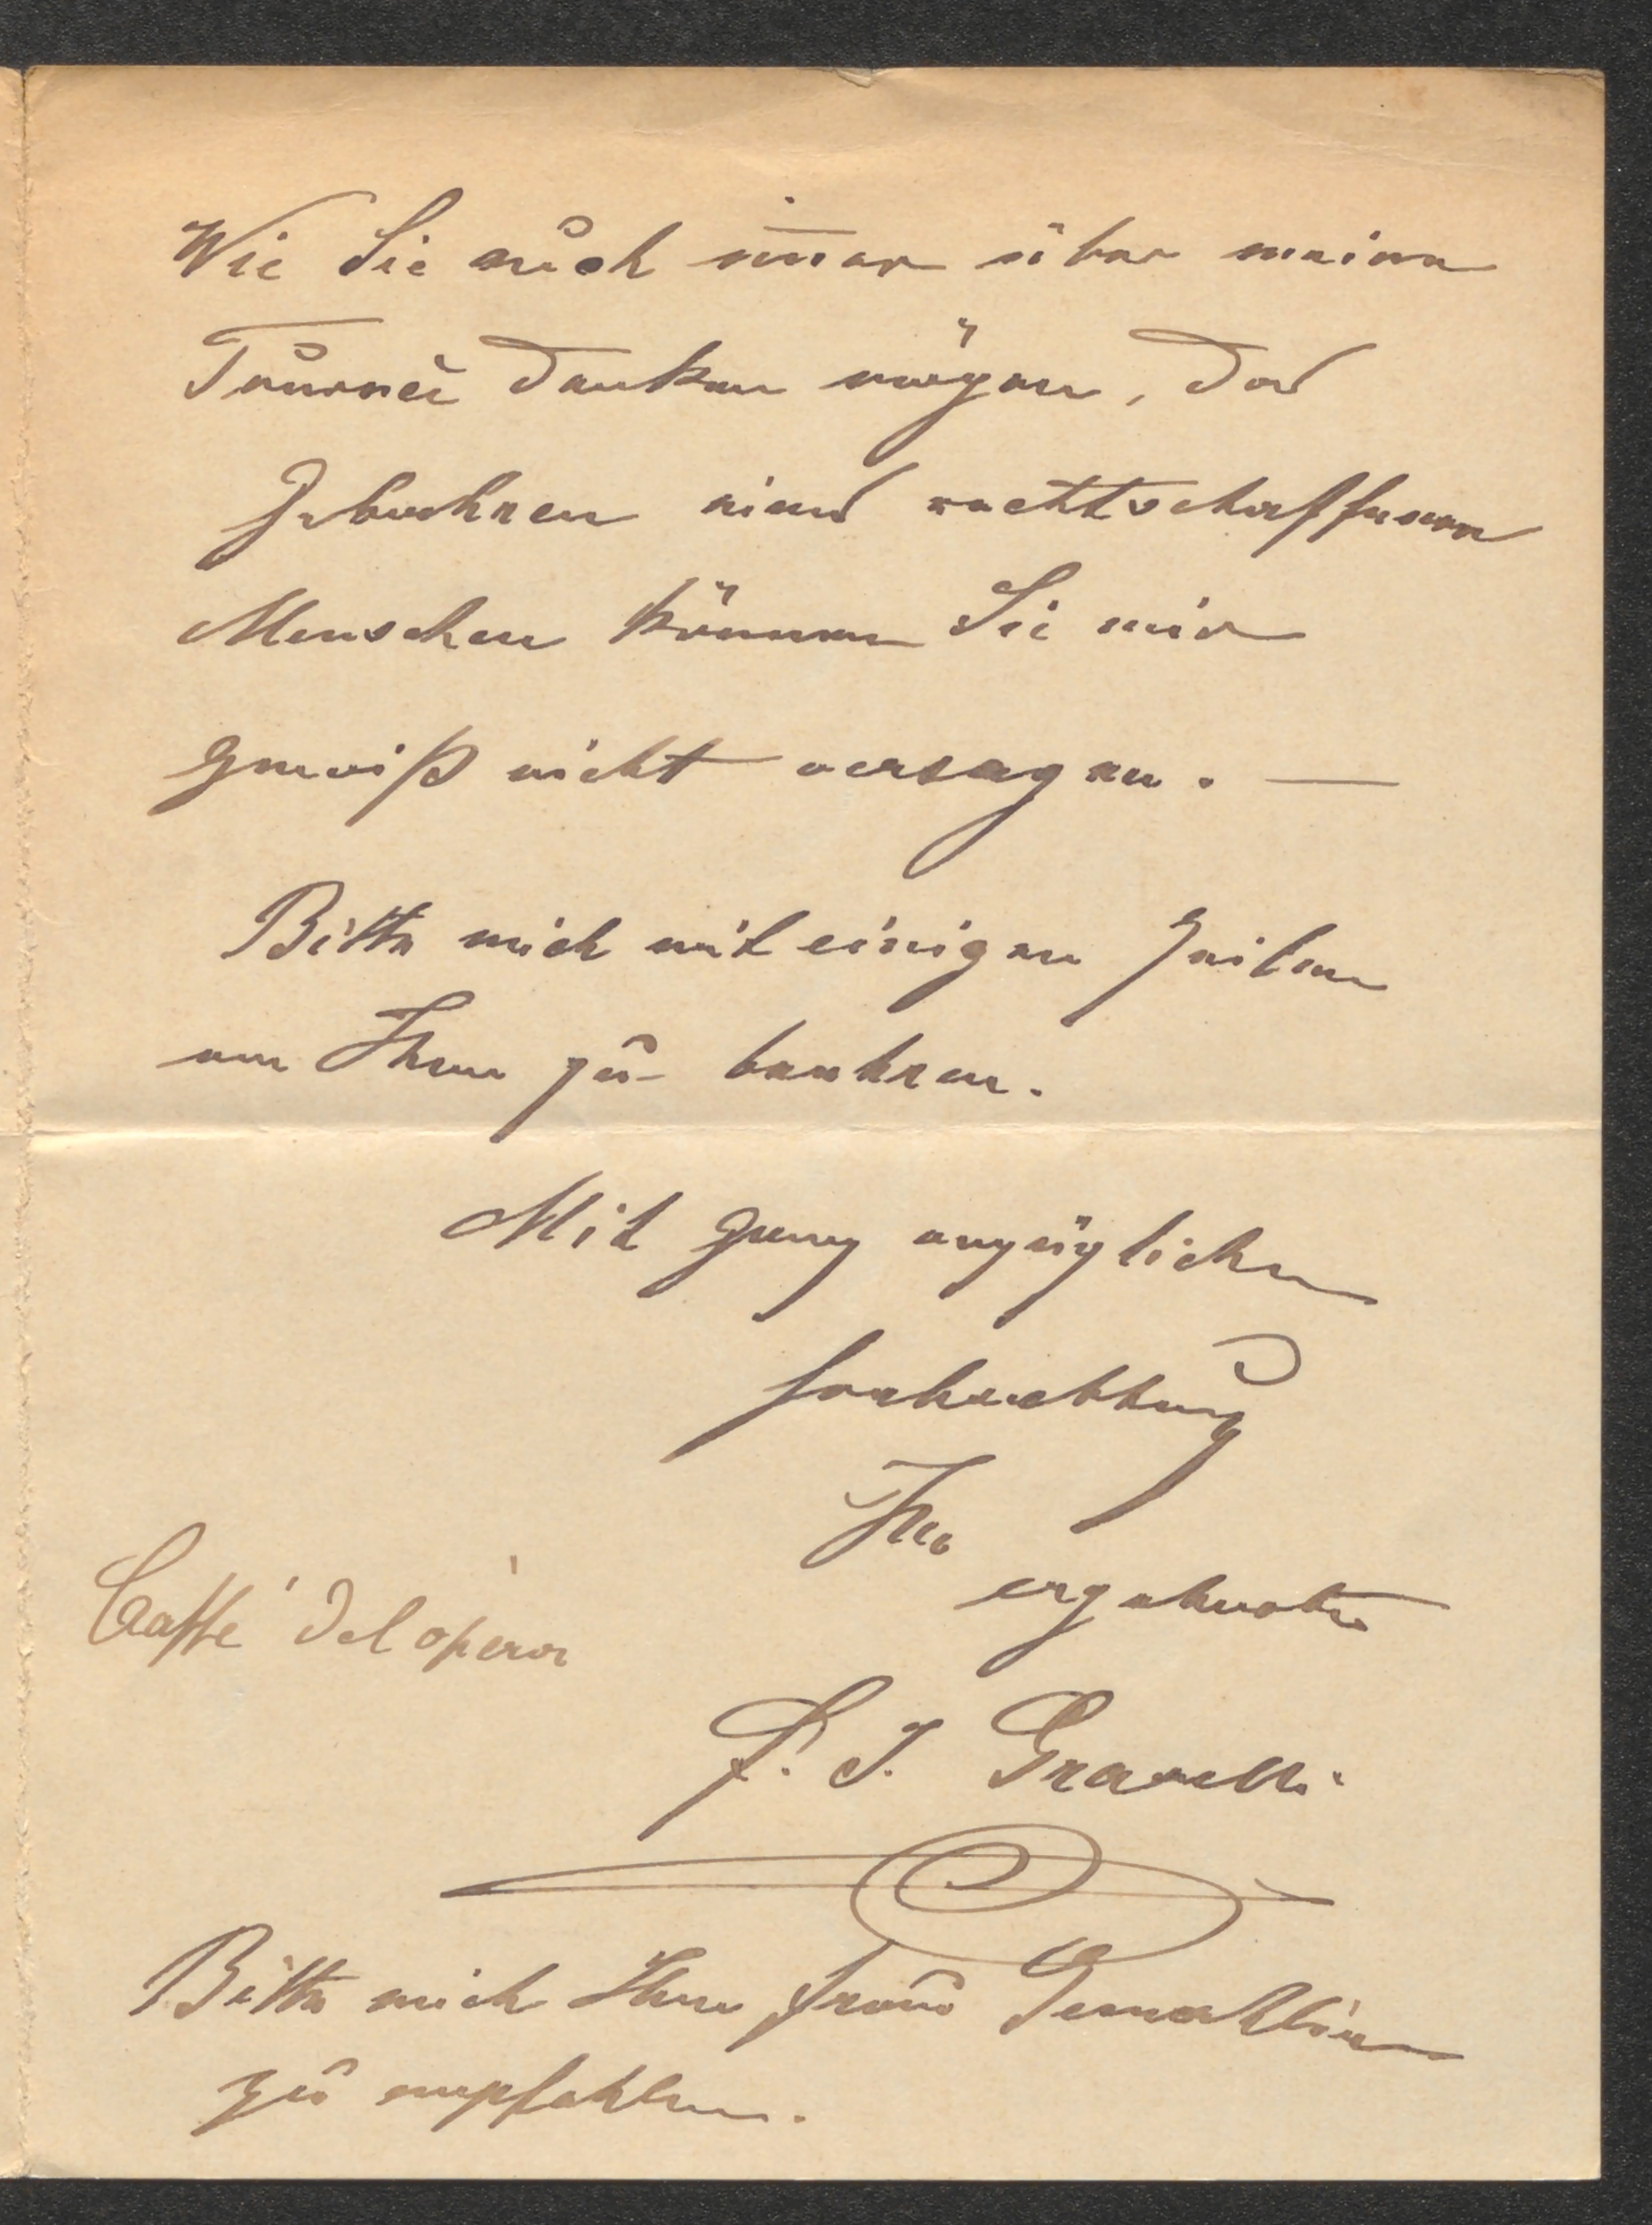 Wie Sie auch im̅er über meine
Tournèe denken mögen, das
Gebahren eines rechtschaffenen
Menschen können Sie mir
gewiß nicht versagen. —
Bitte mich mit einigen Zeilen
von Ihnen zu beehren.
Mit ganz vorzüglicher
Hochachtung
Ihr
ergebenster
Caffé del opera
F. J. Gravelli
Bitte mich Ihrer Frau Gemahlin
zu empfehlen.